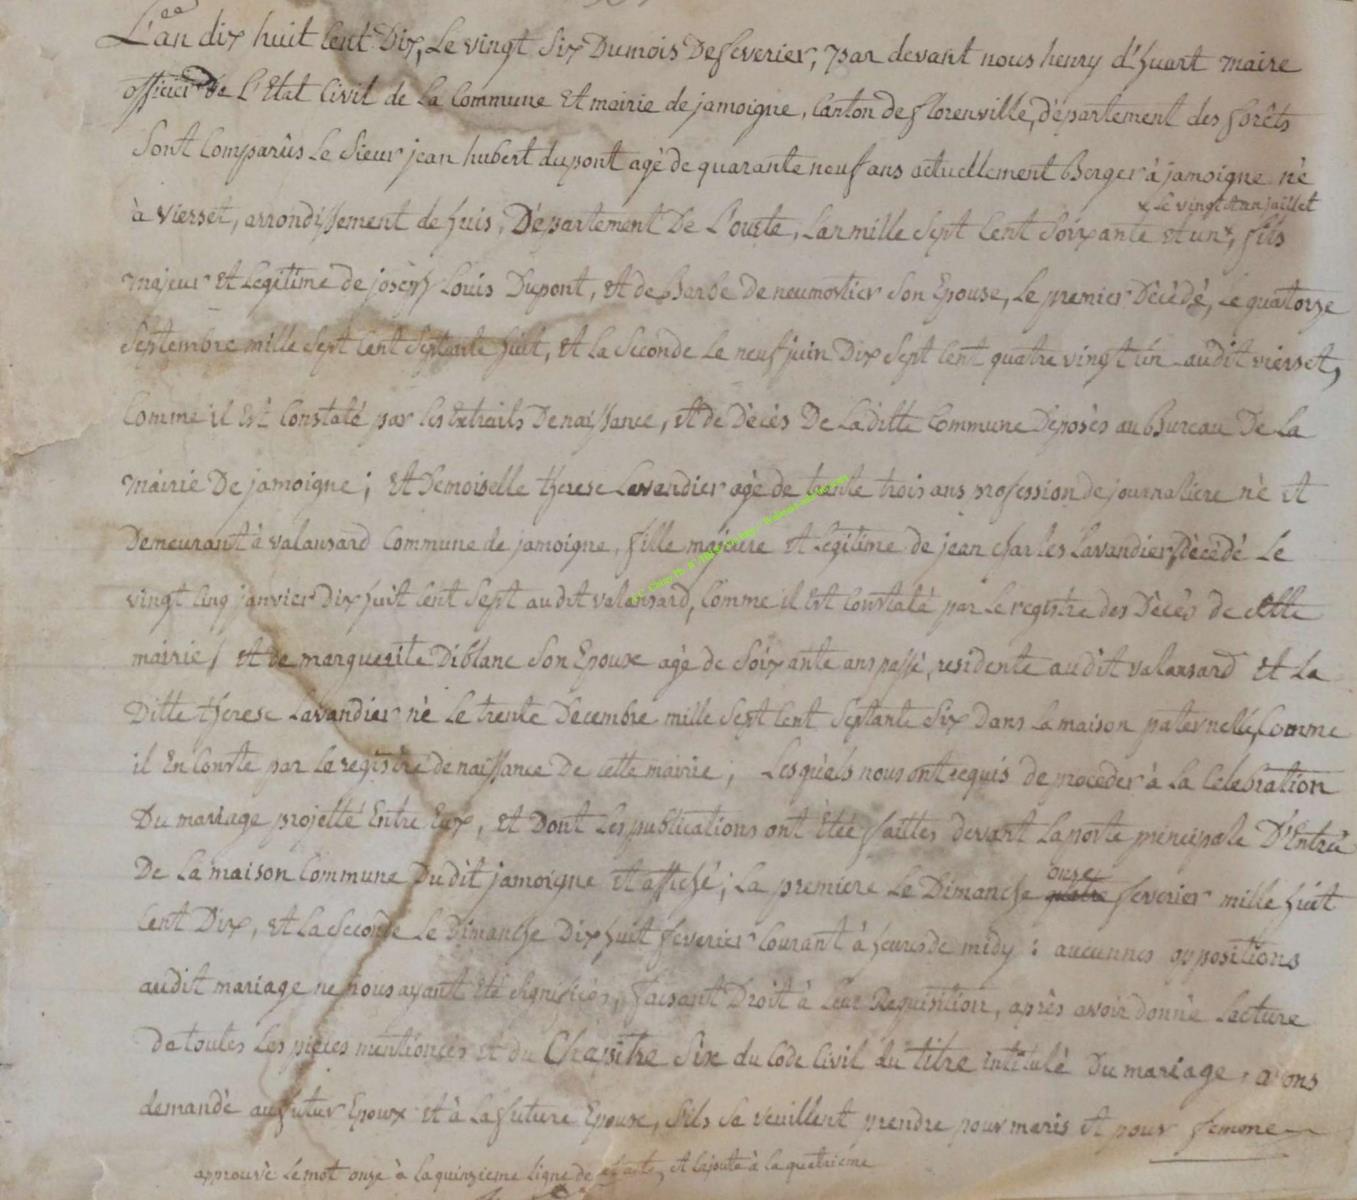 L'an dix huit Cent Dix, Le vingt Six Dumois Defeverier, par devant nous henry d'huart maire
officier de L'Etat Civil de La Commune Et mairie de jamoigne, Canton de florenville, département des forêts
Sont Comparûs Le Sieur jean hubert dupont agè de quarante neuf ans actuellement Berger à jamoigne nè
x Le vingt un juillet
à Vierset, arrondissement de huis, Département De L'ourte, L'an mille Sept Cent Soixante et un x, fils
majeur et Legitime de joseph Louis Dupont, et de Barbe De neumostier Son Epouse, Le premier Dècèdè, Le quatorze
Septembre mille Sept Cent Septante huit, et la Seconde Le neuf juin Dix Sept Cent quatre vingt Un audit vierset,
Comme il Est Constaté par les Extraits De naissance, et de Dècès De Laditte Commune Deposès au Bureau De La
mairie De jamoigne ; et Demoiselle therese Lavandier agè de trante trois ans profession de journaliere nè et
Demeurant à valansard Commune de jamoigne, fille majeure et Legitime de jean charles Lavandier, Dècèdé Le
vingt Cinq janvier Dix huit Cent Sept audit valansard, Comme il Est Constaté par Le registre des Dècès de cette
mairie / et de marguerite Diblanc Son Epouse agè de Soixante ans passé, residente audit valansard et La
Ditte therese Lavandier nè Le trente Decembre mille Sept Cent Septante Six dans La maison paternelle, Comme
il En Conste par Le registre de naissance De cette mairie ; Lesquèls nous ont requis de proceder à La Celebration
Du mariage projetté Entre Eux, et Dont Les publications ont Etée faittes devant La porte principale D'Entrée
onze
De La maison Commune Dudit jamoigne et affiché ; La premiere Le Dimanche quatre feverier mille huit
Cent Dix, et La Seconde Le Dimanche Dix huit feverier Courant à heures de midy : aucunnes oppositions
audit mariage ne nous ayant Eté Signifiées, faisant Droit à Leur Requisition, après avoir donnè Lecture
De toutes Les pieces mentionées et du Chapitre Six du Code Civil du titre intitulè Du mariage, avons
demandè au futur Epoux et à La future Epouse, S'ils Se veuillent prendre pour maris et pour femme
approuvè Le mot onze à la quinzieme Ligne de et L'ajoutè à la quatrieme